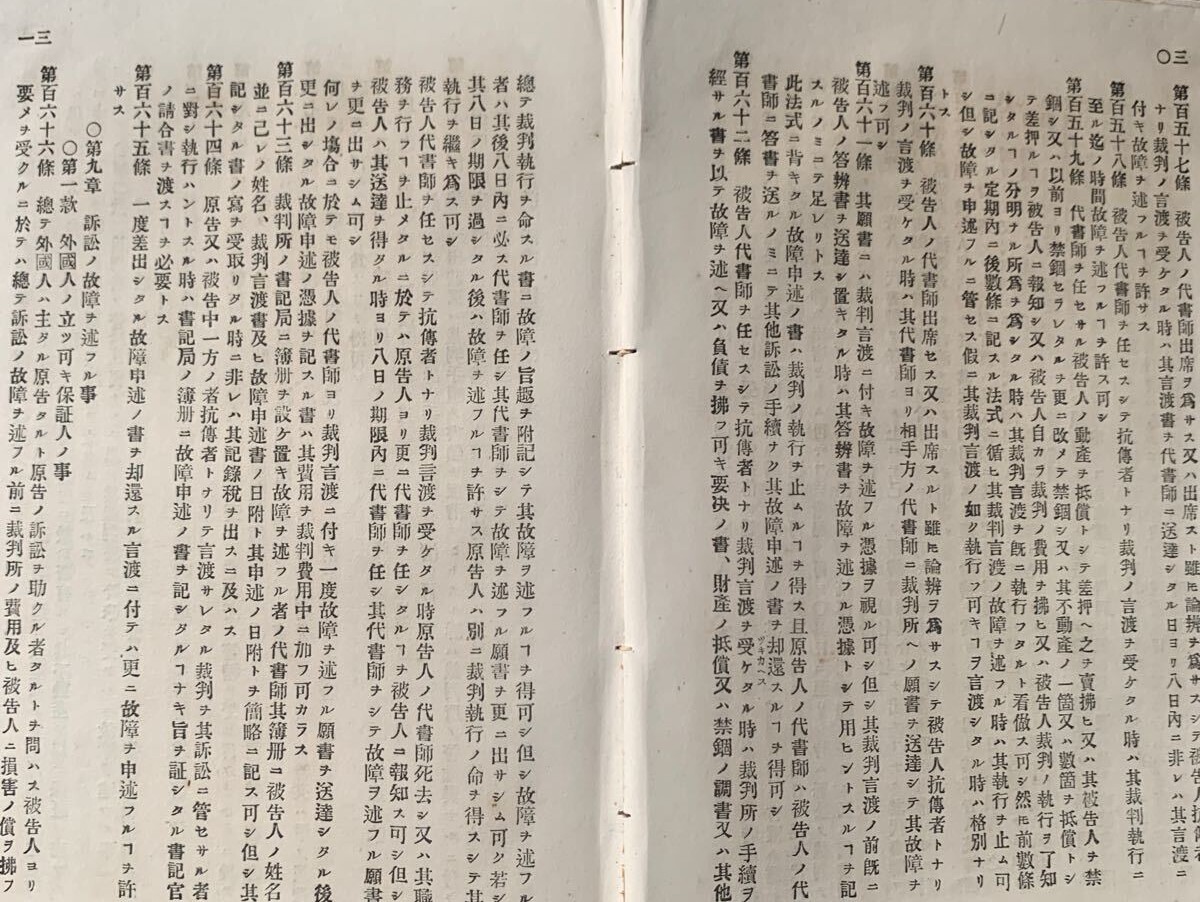 三〇
第百五十七條 被告人ノ代書師出席ヲ爲サス又ハ出席スト雖𪜈論辨ヲ爲サスシテ被告人抗傳者
ナリ裁判ノ言渡ヲ受ケタル時ハ其言渡書ヲ代書師ニ送達シタル日ヨリ八日內ニ非レハ其言渡ニ
付キ故障ヲ述フルヿヲ許サス
第百五十八條 被告人代書師ヲ任セスシテ抗傳者トナリ裁判ノ言渡ヲ受ケタル時ハ其裁判執行ニ
至ル迄ノ時間故障ヲ述フルヿヲ許ス可シ
第百五十九條 代書師ヲ任セサル被告人ノ動產ヲ抵償トシテ差押ヘ之ヲ賣拂ヒ又ハ其被告人ヲ禁
錮シ又ハ以前ヨリ禁錮セラレタルヲ更ニ改メテ禁錮シ又ハ其不動產ノ一箇又ハ數箇ヲ抵償トシ
テ差押ルヿヲ被告人ニ報知シ又ハ被告人自カラ裁判ノ費用ヲ拂ヒ又ハ被告人裁判ノ執行ヲ了知
シタルヿノ分明ナル所爲ヲ爲シタル時ハ其裁判言渡ヲ旣ニ執行フタルト看做ス可シ然𪜈前數條
ニ記シタル定期內ニ後數條ニ記スル法式ニ循ヒ其裁判言渡ノ故障ヲ述フル時ハ其執行ヲ止ム可
シ但シ故障ヲ申述フルニ管セス假ニ其裁判言渡ノ如ク執行フ可キヿヲ言渡シタル時ハ格別ナリ
トス
第百六十條 被告人ノ代書師出席セス又ハ出席スルト雖𪜈論辨ヲ爲サスシテ被告人抗傳者トナリ
裁判ノ言渡ヲ受ケタル時ハ其代書師ヨリ相手方ノ代書師ニ裁判所ヘノ願書ヲ送達シテ其故障ヲ
述フ可シ
第百六十一條 其願書ニハ裁判言渡ニ付キ故障ヲ述フル憑據ヲ視ル可シ但シ其裁判言渡ノ前旣ニ
被告人ノ答辨書ヲ送達シ置キタル時ハ其答辨書ヲ故障ヲ述フル憑據トシテ用ヒントスルヿヲ記
スルノミニテ足レリトス
此法式ニ背キタル故障申述ノ書ハ裁判ノ執行ヲ止ムルヿヲ得ス且原告人ノ代書師ハ被告人ノ代
書師ニ答書ヲ送ルノミニテ其他訴訟ノ手續ナク其故障申述ノ書ヲ却還スルヿヲ得可シ
第百六十二條 被告人代書師ヲ任セスシテ抗傳者トナリ裁判言渡ヲ受ケタル時ハ裁判所ノ手續ヲ
經サル書ヲ以テ故障ヲ述ヘ又ハ負債ヲ拂フ可キ要決ノ書、財產ノ抵償又ハ禁錮ノ調書又ハ其他
三一
總テ裁判執行ヲ命スル書ニ故障ノ旨趣ヲ附記シテ其故障ヲ述フルヿヲ得可シ但シ故障ヲ述フル
者ハ其後八日內ニ必ス代書師ヲ任シ其代書師ヲシテ故障ヲ述フル願書ヲ更ニ出サシム可ク若シ
其八日ノ期限ヲ過シタル後ハ故障ヲ述フルヿヲ許サス原告人ハ別ニ裁判執行ノ命ヲ得スシテ其
執行ヲ繼キ爲ス可シ
被告人代書師ヲ任セスシテ抗傳者トナリ裁判言渡ヲ受ケタル時原告人ノ代書師死去シ又ハ其職
務ヲ行フヿヲ止メタルニ於テハ原告人ヨリ更ニ代書師ヲ任シタルヿヲ被告人ニ報知ス可シ但シ
被告人ハ其送達ヲ得タル時ヨリ八日ノ期限內ニ代書師ヲ任シ其代書師ヲシテ故障ヲ述フル願書
ヲ更ニ出サシム可シ
何レノ塲合ニ於テモ被告人ノ代書師ヨリ裁判言渡ニ付キ一度故障ヲ述フル願書ヲ送達シタル後
更ニ出シタル故障申述ノ憑據ヲ記スル書ハ其費用ヲ裁判費用中ニ加フ可カラス
第百六十三條 裁判所ノ書記局ニ簿册ヲ設ケ置キ故障ヲ述フル者ノ代書師其簿册ニ被告人ノ姓名
並ニ己レノ姓名、裁判言渡書及ヒ故障申述書ノ日附ト其申述ノ日附トヲ簡略ニ記ス可シ但シ其
記シタル書ノ寫ヲ受取リタル時ニ非レハ其記錄稅ヲ出スニ及ハス
第百六十四條 原告又ハ被告中一方ノ者抗傳者トナリテ言渡サレタル裁判ヲ其訴訟ニ管セサル者
ニ對シ執行ハントスル時ハ書記局ノ簿册ニ故障申述ノ書ヲ記シタルヿナキ旨ヲ証シタル書記官
ノ請合書ヲ渡スヿヲ必要トス
第百六十五條 一度差出シタル故障申述ノ書ヲ却還スル言渡ニ付テハ更ニ故障ヲ申述フルヿヲ許
サス
〇第九章 訴訟ノ故障ヲ述フル事
〇第一款 外國人ノ立ツ可キ保証人ノ事
第百六十六條 總テ外國人ハ主タル原告タルト原告ノ訴訟ヲ助クル者タルトヲ問ハス被告人ヨリ
要メヲ受クルニ於テハ總テ訴訟ノ故障ヲ述フル前ニ裁判所ノ費用及ヒ被告人ニ損害ノ償ヲ拂フ